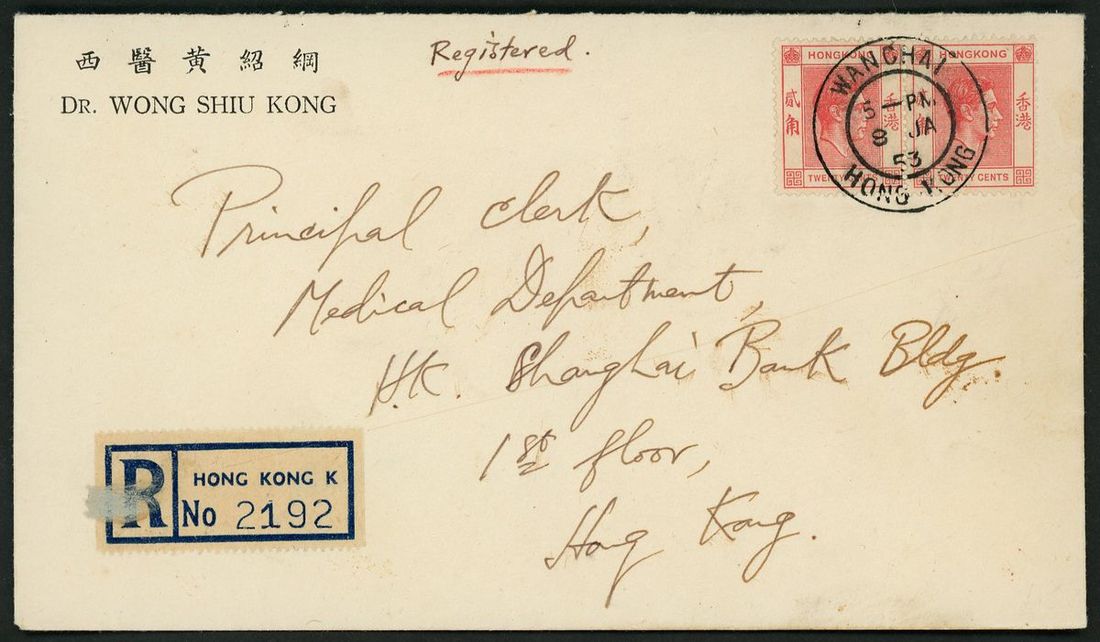 西醫黃紹綱
DR. WONG SHIU KONG
Registered.
HONG KONG
HONG KONG
貳角
香港
角
香港
TWENTY CENTS
WANCHAI
5 — PM.
8 JA
53
HONG KONG
Principal Clerk,
Medical Department,
H.K. Shanghai Bank Bldg.
1st floor,
Hong Kong.
R
HONG KONG K
No 2192